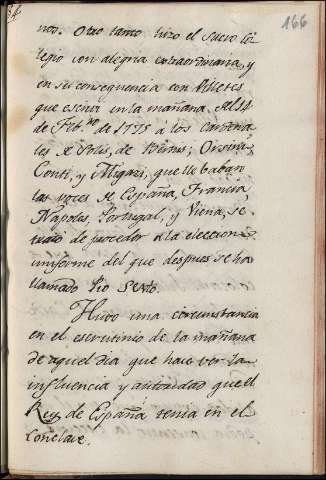 166
nos. Otro tanto hizo el Sacro Co-
legio con alegria extraordinaria, y
en su consequencia con Villetes
que escrivi en la mañana del 14
de Feb.ro de 1775 a los Cardena-
les de Solis, de Bernis, Orsini,
Conti, y Migazi, que llebaban
las voces de España, Francia,
Napoles, Portugal, y Viena, se
trató de proceder a la eleccion
uniforme del que despues se ha
llamado Pio Sexto.
Huvo una circunstancia
en el escrutinio de la mañana
de aquel dia que hace ver la
influencia y autoridad que el
Rey de España tenia en el
Conclave.